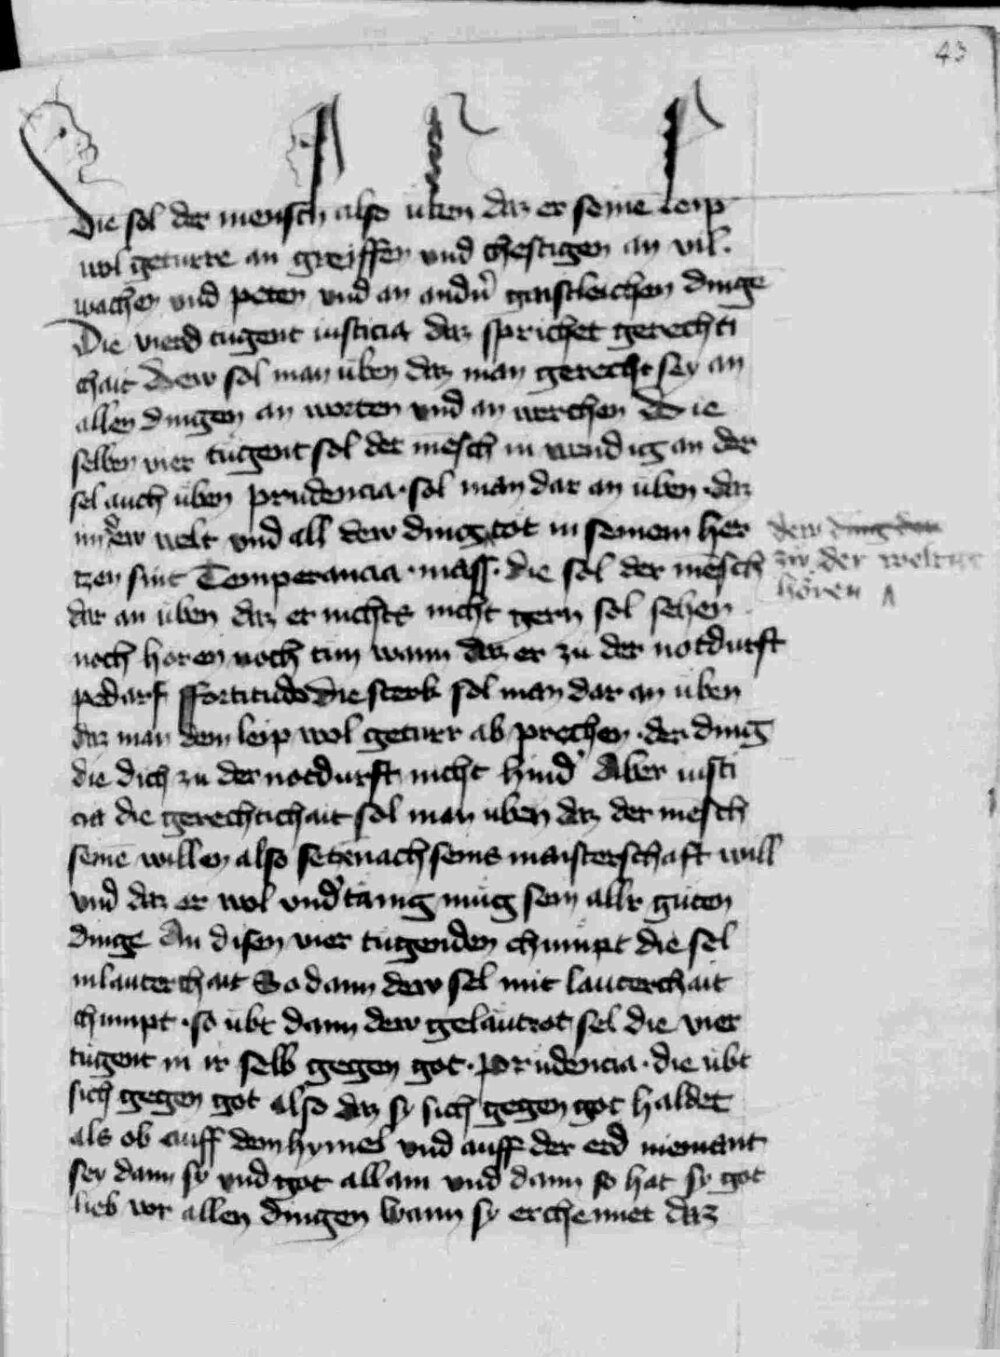 43
Die sol der mensch also üben daz er seinē leip
wol geturre an greiffen vnd chestigen an vil
wachen vnd peten vnd an andn̄ gaistleichen dinge
Die vierd tugent iusticia daz sprichet gerechti
chait Dew sol man üben daz man gerecht sey an
allen dingen an worten vnd an werchen Die
selben vier tugent sol der mēsch in wendig an der
sel auch üben prudencia · sol man dar an üben · daz
welt vnd all dew ding tot in seinem her
dew ding dew
zů der welt
hören
tzen sint Temperancia · mass · die sol der mēsch
dar an üben daz er nichts nicht gern sol sehen
noch horen noch tun wann daz er zu der notdurft
pedarf ffortitudo die sterk sol man dar an üben
daz man dem leip wol geturr ab prechen · der ding
die dich zu der notdurft nicht hind' Aber iusti
cia die gerechtichait sol man uben daz der mēsch
seinē willen also setz nach seins maisterschaft will
vnd daz er wol vnd'tanig mug sein aller guten
dinge An disen vier tugenden chumpt die sel
in lauterchait So dann dew sel mit lauterchait
chumpt · so übt dann dew geläutrot sel die vier
tugent in ir selb gegen got · prudencia · die übt
sich gegen got also daz sy sich gegen got haldet
als ob auff dem hymel vnd auff der erd niemant
sey dann sy vnd got allain vnd dann so hat sy got
lieb vor allen dingen wann sy erchennet daz